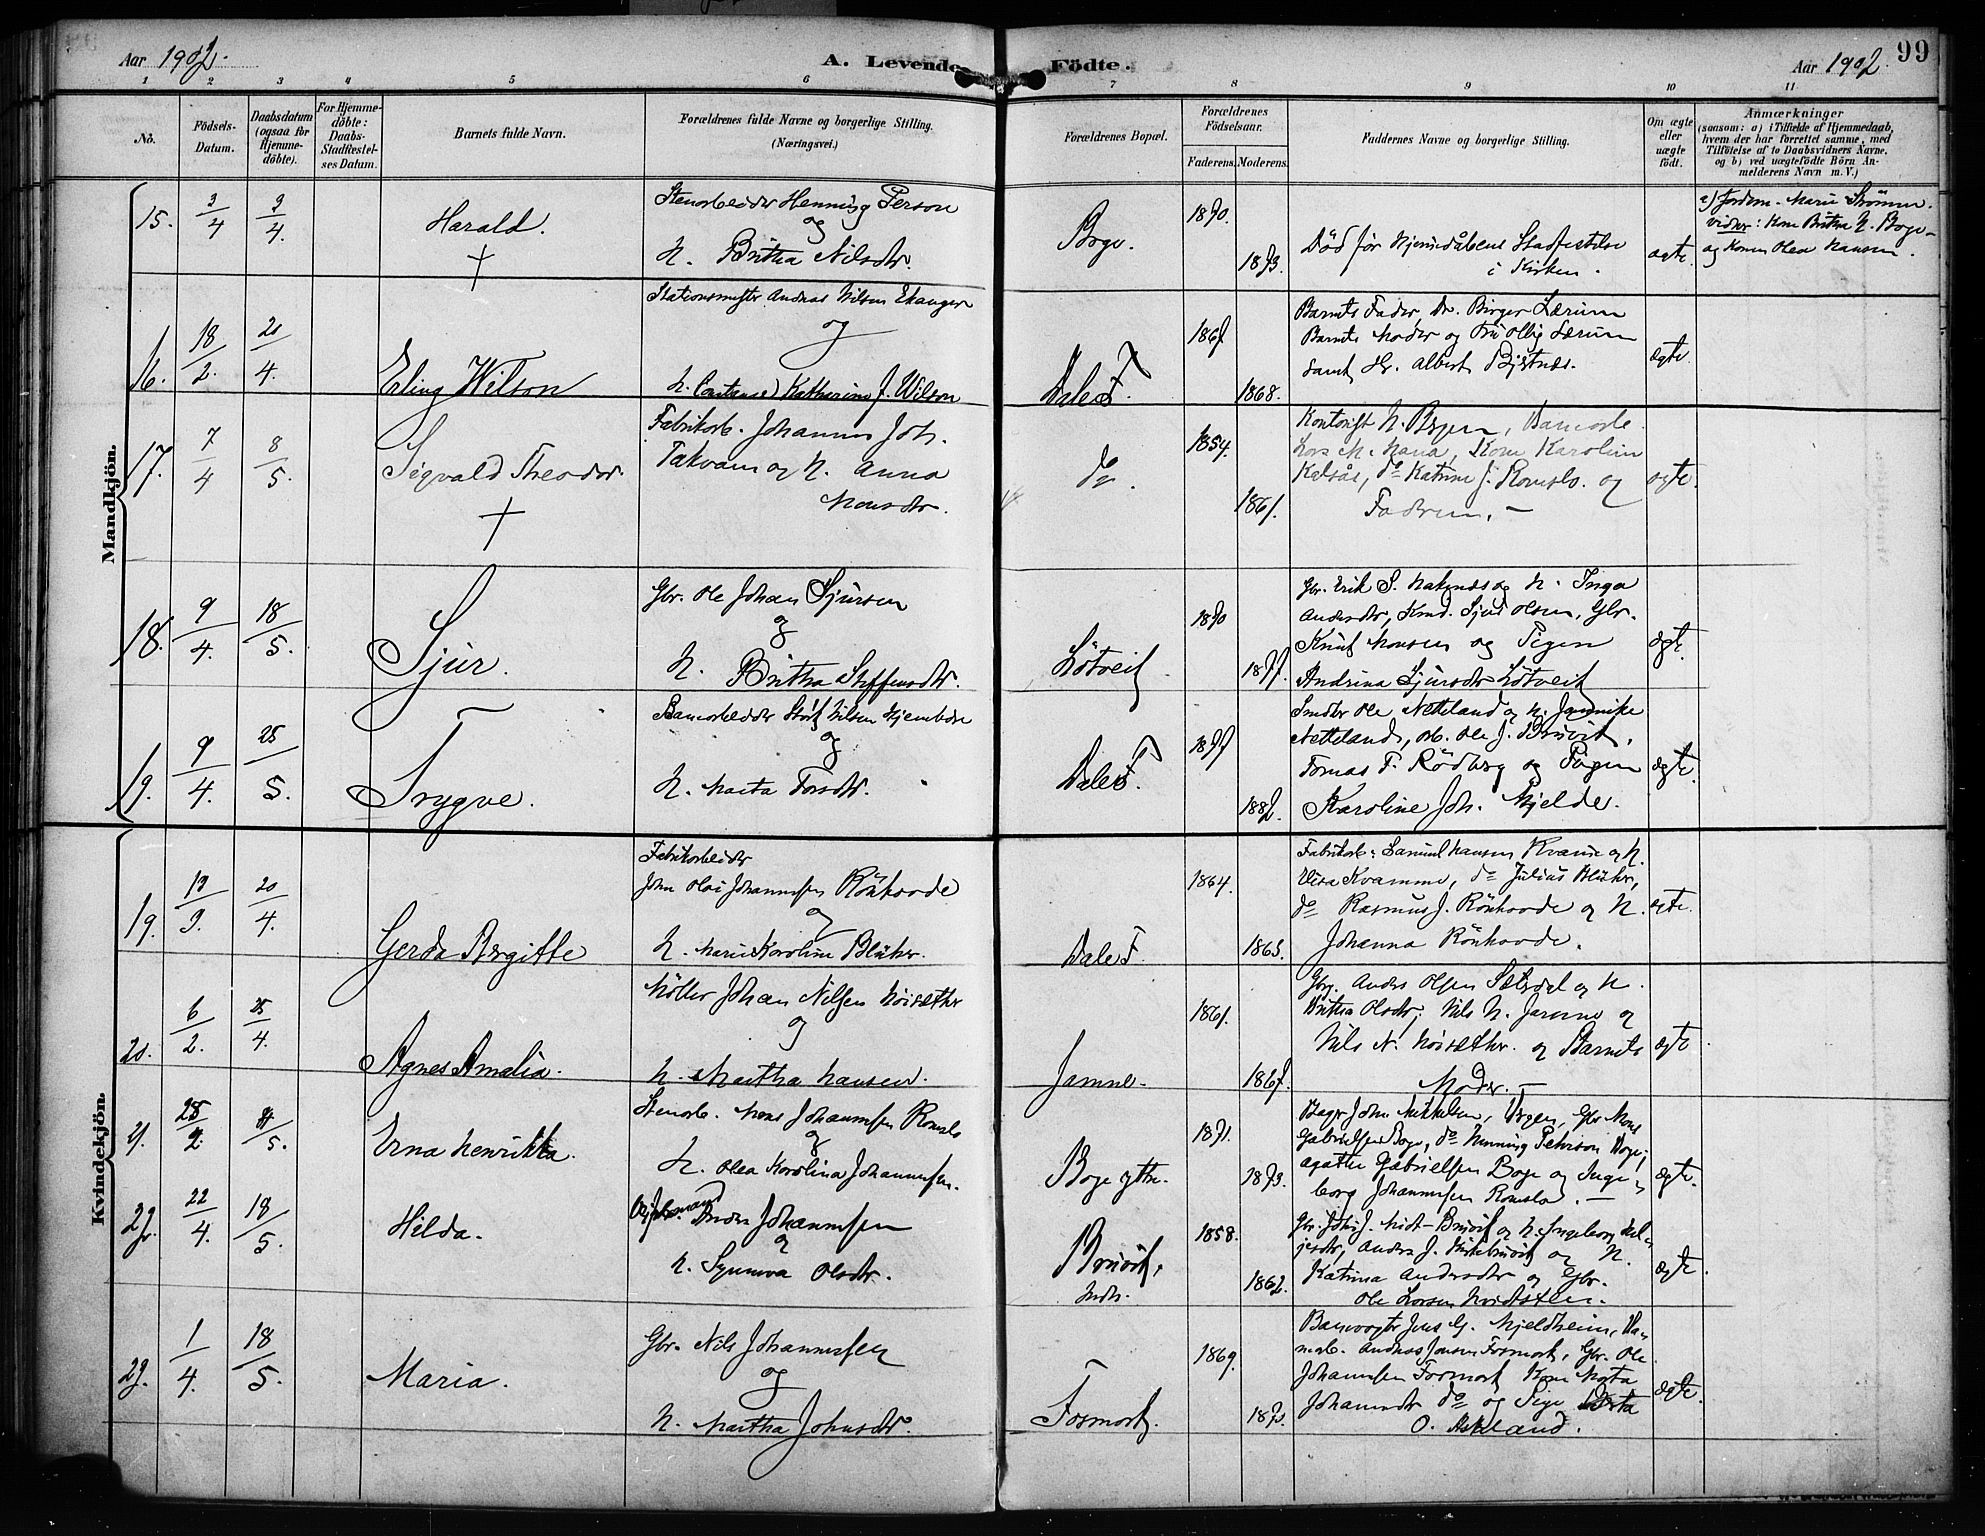 Aar 1902.
A. Levende Födte.
Aar 1902.
99
1 2 3 4 5 6 7 8 9 10 11
No.
Födsels-Datum.
Daabsdatum (ogsaa for Hjemme-döbte).
For Hjemme-döbte: Daabs-Stadfæstel-ses Datum.
Barnets fulde Navn.
Forældrenes fulde Navne og borgerlige Stilling.
(Næringsvei.)
Forældrenes Bopæl.
Forældrenes Födselsaar.
Faderens. Moderens.
Faddernes Navne og borgerlige Stilling.
Om ægte eller uægte födt.
Anmærkninger
(saasom: a) i Tilfælde af Hjemmedaab,
hvem der har forrettet samme, med
Tilföielse af to Daabsvidners Navne,
og b) ved uægtefödte Börn An-
melderens Navn m. V.)
Mandkjön.
15. 3/4 3/4. Harald. †
Stenarbeider Henning Person
og
H. Britha Nilsdtr.
Boge. 1870. 1873.
Död før Hjemmedåbens Stadfestelse
i Kirken.
ægte.
a) Jordem. Marie Strömm.
vidner: Kone Britha N. Boge
og Konen Olea Hansen.
16. 18/2. 20/4. Erling Wilson
Stationsmester Andreas Nilsen Ekanger
og
H. Constance Katharina J. Wilson
Dale F. 1867 1868.
Barnets Fader, Dr. Birger Lærum
Barnets Moder og Fru Lærum
samt Hr. Albert
ægte.
17. 7/4 8/5. Sigvald Theodor †
Fabrikarb. Johannes Joh.
Takvam og H. Anna
Monsdtr.
do. 1854. 1861.
Lars M. Kone Karoline
Kalsås, do Katrine J. Romslo. og
Faderen. —
ægte.
18. 9/4. 18/5. Sjur.
Gbr. Ole Johan Sjursen
og
H. Britha Steffensdtr.
Lötveit. 1870 1877.
Gbr. Erik S. og H. Inga
Andersdtr, Sjur Olsen, Gbr.
Knut Monsen og Pigen
Andrina Sjursdtr Lötveit
ægte.
19. 9/4. 25/5. Trygve.
Banearbeider Nilsen
og
H. Marta Torsdtr.
Dale F. 1877 1882.
Smed Ole Netteland og H. Jannike
Netteland, arb. Ole J. Bruvik,
Tomas T. Rödberg og Pigen
Karoline Joh. Mjelde.
ægte.
Kvindekjön.
19. 13/3. 20/4. Gerda Birgitte
Fabrikarbeider
John Olai Johannessen Rönhovde
og
H. Marie Karoline Blüher.
Dale F. 1864. 1865.
Fabrikarb. Samuel Hansen Kvamme og H.
Elisa Kvamme, do Julius Blüher,
do Rasmus J. Rönhovde og H.
Johanna Rönhovde.
ægte.
20. 6/2. 25/4. Agnes Amalia.
Möller Johan Nilsen Höisæther
og
H. Martha Hansen.
Jamne. 1861. 1867.
Gbr. Anders Olsen og H.
Brithia Olsdtr, Nils N. Jamne og
Nils N. Höisæther. og Barnets
Moder. —
ægte
21. 28/2. 4/5. Erna Henrikka.
Stenarb. Mons Johannessen Romslo
og
H. Olea Karolina Johannessen.
Boge ytre. 1871. 1873.
Bager John Mikkelsen, Bergen, Gbr. Mons
Gabrielsen Boge, do Henning Pehrson Boge,
Agathe Gabrielsen Boge og Inge-
borg Johannessen Romslo. —
ægte.
22. 22/4. 18/5. Hilda.
Anders Johannessen
og
H. Synneva Olsdtr.
Bruvik, Indr. 1858. 1862.
Gbr. Johs J. Midt-Bruvik og H. Ingeborg
Anders J. Kirkebruvik og H.
Katrina Andersdtr og Gbr.
Ole Larsen Hvidsten.
ægte.
23. 1/4. 18/5. Maria.
Gbr. Nils Johannessen
og
H. Martha Johnsdtr.
Fosmark. 1869.
Banevogter Jens G. Mjeldheim, Ba-
nearb. Andreas Jonsen Fosmark, Gbr. Ole
Johannessen Fosmark Kone Marta
Johannesdtr do og Pige Marta
O. Askeland.
ægte.